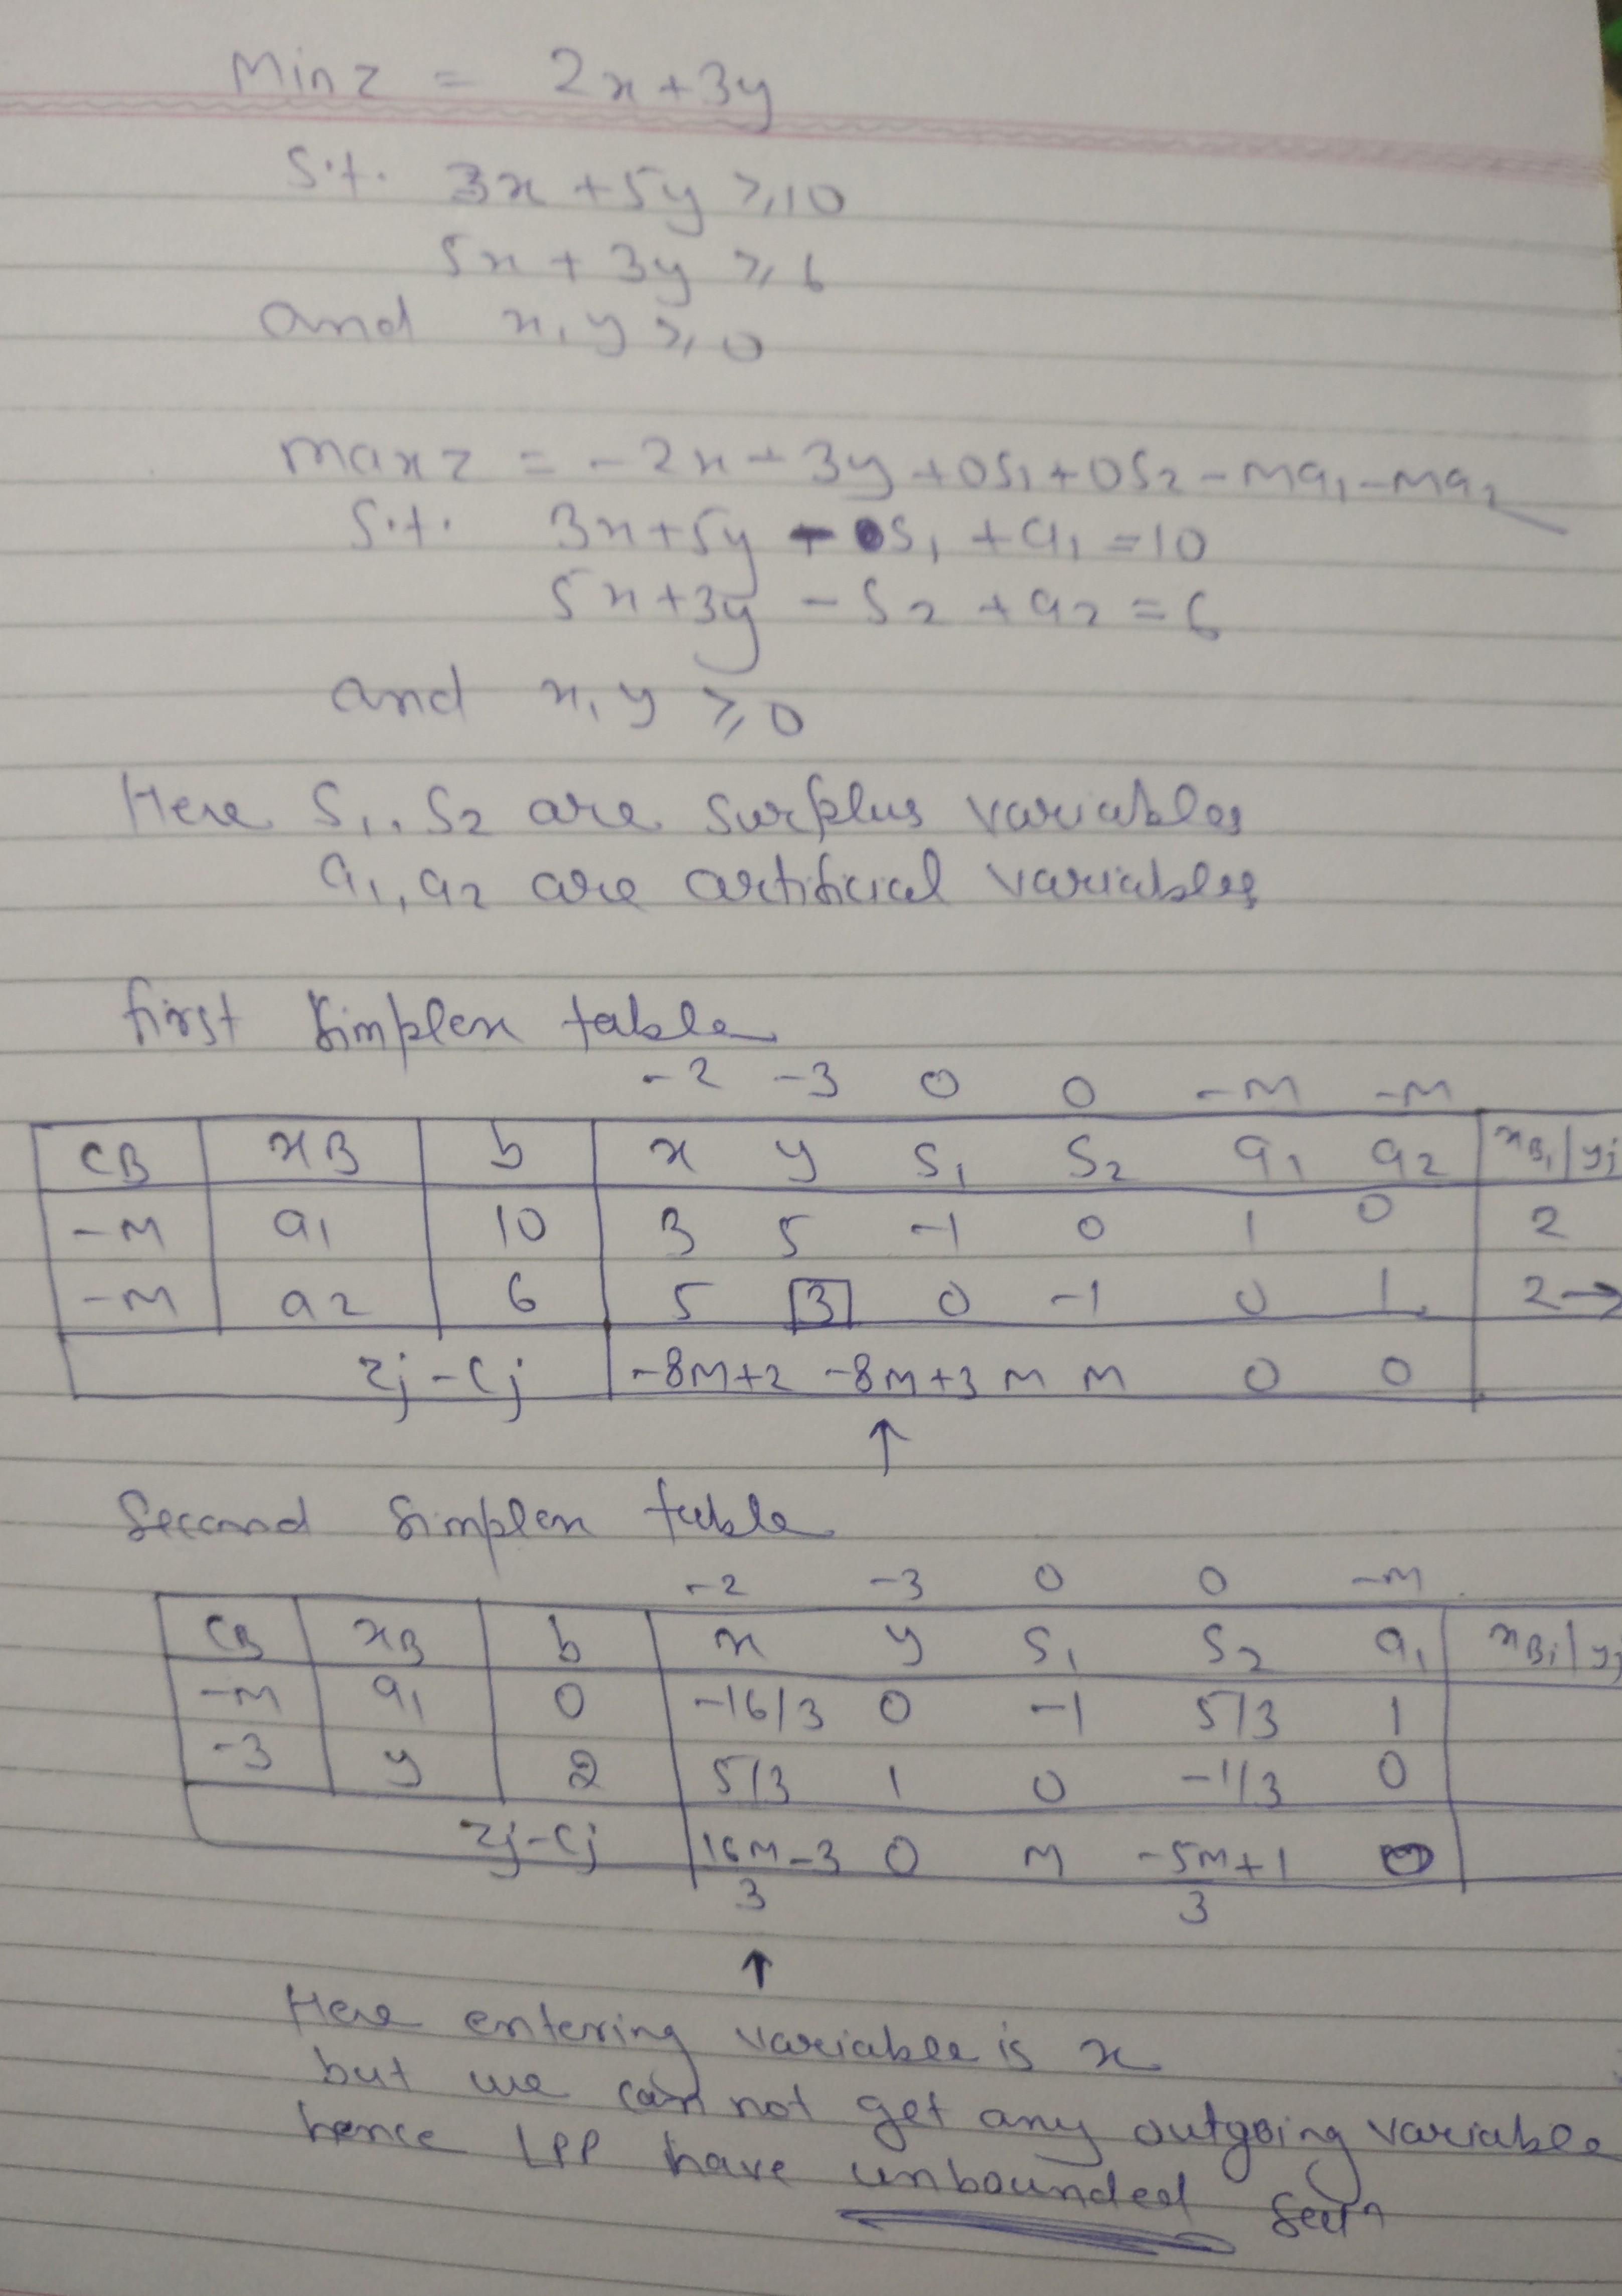 Min z = 2x + 3y
S.t. 3x + 5y ≥ 10
5x + 3y ≥ 6
and x, y ≥ 0
max z = -2x - 3y + 0S1 + 0S2 - Ma1 - Ma2
S.t. 3x + 5y - S1 + a1 = 10
5x + 3y - S2 + a2 = 6
and x, y ≥ 0
Here S1, S2 are surplus variables
a1, a2 are artificial variables
first simplex table
-2 -3 0 0 -M -M
CB xB b x y S1 S2 a1 a2 xBi/yj
-M a1 10 3 5 -1 0 1 0 2
-M a2 6 5 3 0 -1 0 1 2→
zj-cj -8M+2 -8M+3 M M 0 0
↑
Second Simplex table
-2 -3 0 0 -M
CB xB b x y S1 S2 a1 xBi/yj
-M a1 0 -16/3 0 -1 5/3 1
-3 y 2 5/3 1 0 -1/3 0
zj-cj 16M-3/3 0 M -5M+1/3 0
↑
Here entering variable is x
but we can not get any outgoing variable
hence LPP have unbounded